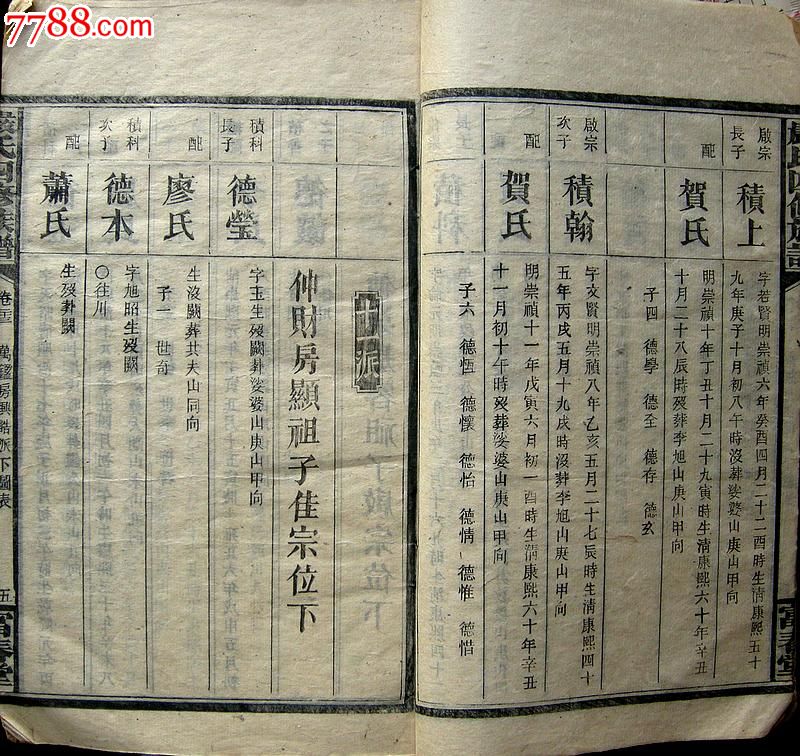 7788.com
嚴氏四修族譜
富春堂
啟宗
長子
積上
字若賢明崇禎六年癸酉四月二十二酉時生清康熙五十
九年庚子十月初八午時沒葬娑婆山庚山甲向
配
賀氏
明崇禎十年丁丑十月二十九寅時生清康熙六十年辛丑
十月二十八辰時歿葬李旭山庚山甲向
子四 德學 德全 德存 德玄
啟宗
次子
積翰
字文賢明崇禎八年乙亥五月二十七辰時生清康熙四十
五年丙戌五月十九戌時沒葬李旭山庚山甲向
配
賀氏
明崇禎十一年戊寅六月初一酉時生清康熙六十年辛丑
十一月初十午時歿葬娑婆山庚山甲向
子六 德恆 德懷 德怡 德情 德惟 德惜
十一派
仲財房顯祖子佳宗位下
積科
長子
德瑩
字玉生歿闕葬娑婆山庚山甲向
配
廖氏
生沒闕葬共夫山同向
子一 世奇
積科
次子
德本
字旭昭生歿闕
○往川
配
蕭氏
生歿葬闕
嚴氏四修族譜
卷三
萬鎰房興誥派下圖表
五
富春堂